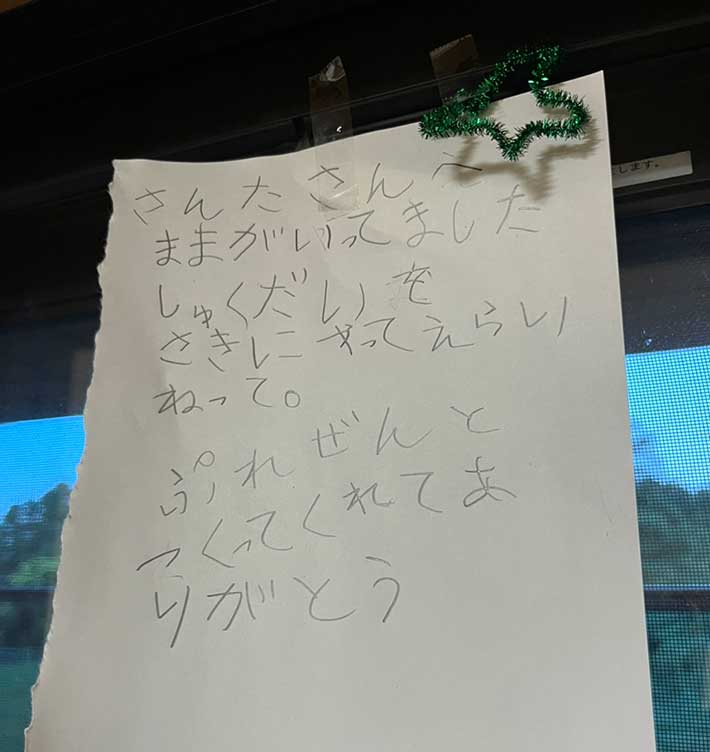 さんたさんへ
ままがいってました
しゅくだいを
さきにやってえらい
ねって。
ぷれぜんと
つくってくれてあ
りがとう
します。